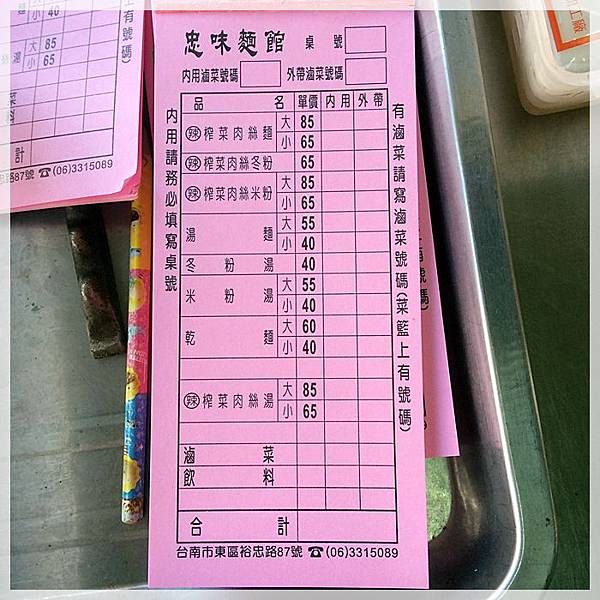 忠味麵館 桌號
內用滷菜號碼 外帶滷菜號碼
品名 單價 內用 外帶
辣 榨菜肉絲麵 大 85
小 65
辣 榨菜肉絲冬粉 65
辣 榨菜肉絲米粉 大 85
小 65
湯麵 大 55
小 40
冬粉湯 40
米粉湯 大 55
小 40
乾麵 大 60
小 40
辣 榨菜肉絲湯 大 85
小 65
滷菜
飲料
合計
台南市東區裕忠路87號 ☎(06)3315089
內用請務必填寫桌號
有滷菜請寫滷菜號碼(菜籃上有號碼)
小 40
大 85
小 65
湯
菜
料
計
路87號 ☎(06)3315089
有號碼)
有號碼)
工廠